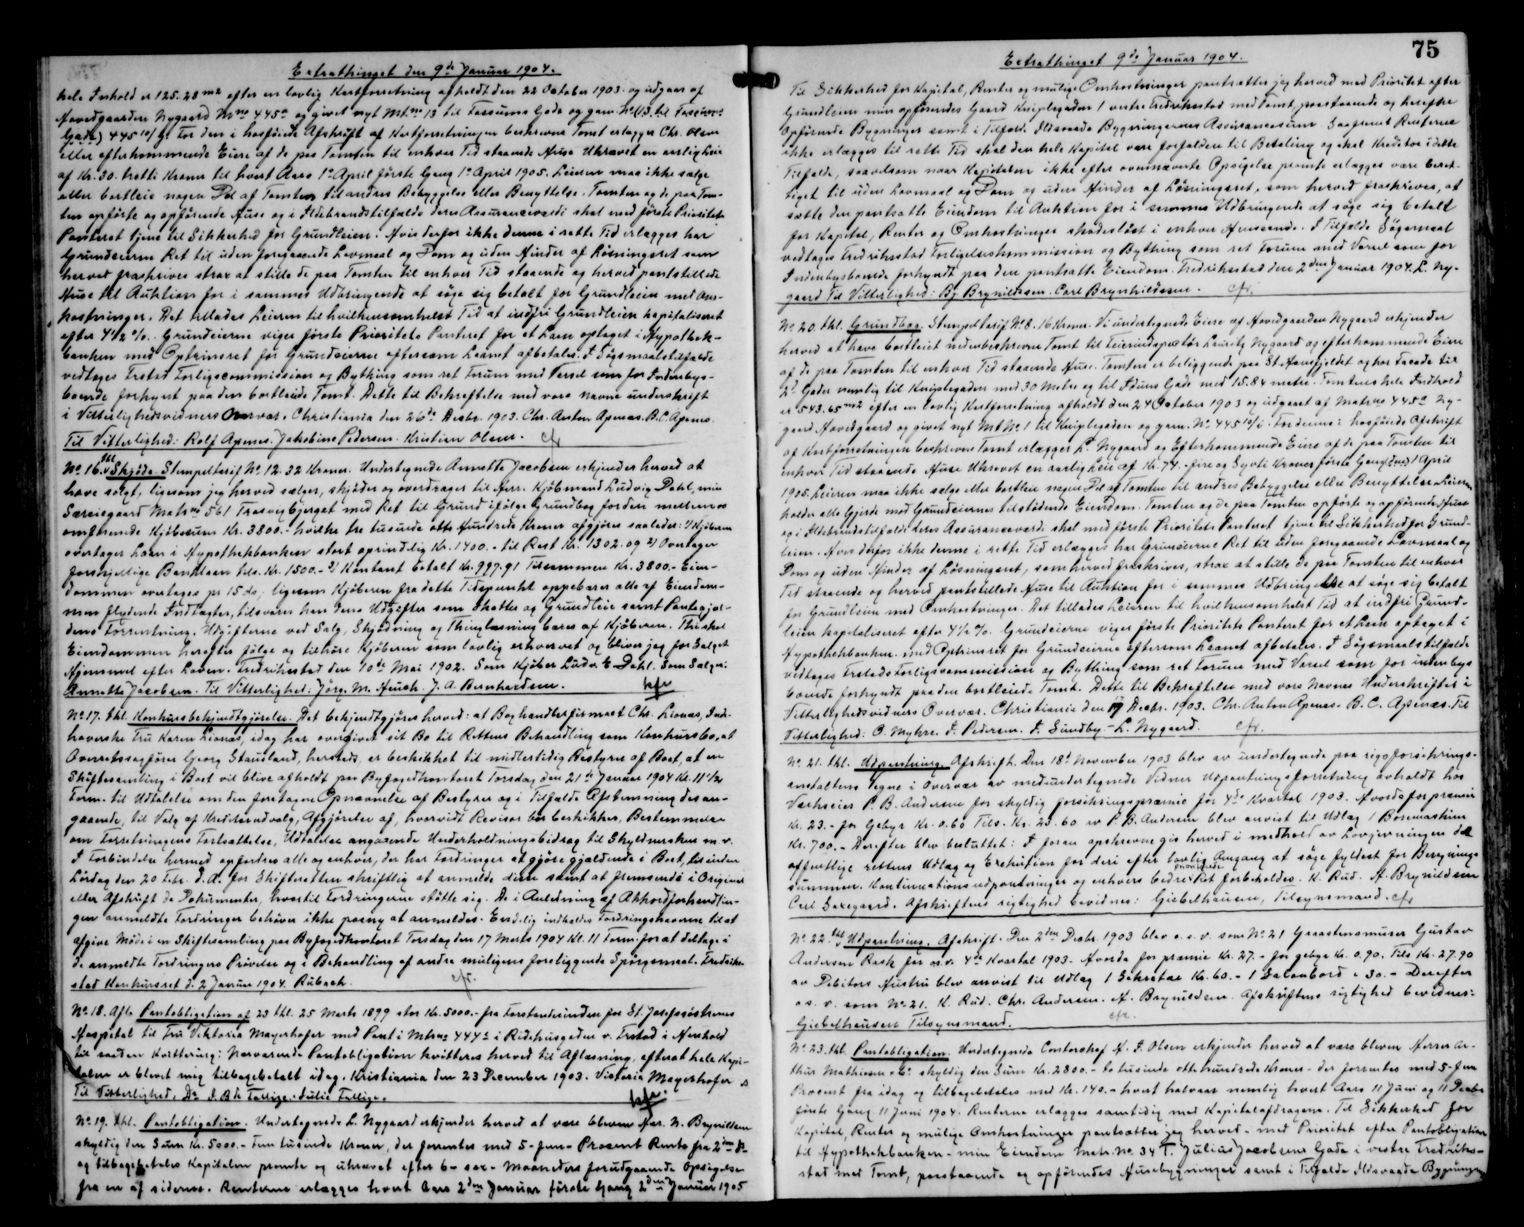 Extrathinget den 9de Januar 1904.
hele Inhold er 125.28 m2 efter en lovlig Kartforretning afholdt den 22 October 1903 og udgaar af
Hovedgaarden Nygaard Mno 445a og givet nyt Mtno 13 til Fassums Gade og gam No (13 til Fassums
Gade) 445 For den i hosføiede Afskrift af Kartforretningen beskrevne Tomt erlægger Chr. Olsen
eller efterkommende Eiere af de paa Tomten til enhver Tid staaende Huse Ukrævet en aarlig leie
af Kr. 30. tretti Kroner til hvert Aars 1ste April første Gang 1ste April 1905. Leieren maa ikke sælge
eller bortleie nogen Del af Tomten til andres Bebyggelse eller Benyttelse. Tomten og de paa Tom-
ten opførte og opførende Huse og i Ildebrandstilfælde deres Assuranceværdi skal med første Prioritets
Panteret tjene til Sikkerhed for Grundleien. Hvis derfor ikke denne i rette Tid erlægges har
Grundeierne Ret til uden foregaaende Lovmaal og Dom og uden Hinder af Løsningsret som
herved fraskrives strax at stille de paa Tomten til enhver Tid staaende og herved pantstillede
Huse til Auktion for i sammes Udbringende at søge sig betalt for Grundleien med Om-
kostninger. Det tillades Leieren til hvilkensomhelst Tid at indfri Grundleien kapitaliseret
efter 4 1/2 %. Grundeierne viger første Prioritets Panteret for et Laan optaget i Hypothek-
banken med Optrinsret for Grundeierne eftersom Laanet afbetales. I Søgsmaalstilfælde
vedtages Frstad Forligscommission og Bything som ret Forum med Varsel som for Indenbys-
boende forkynt paa den bortleiede Tomt. Dette til Bekræftelse med vore navne underskrift
i Vitterlighedsvidners Overvær. Christiania den 26de Decbr. 1903. Chr. Anton Apenæs. B. C. Apenæs.
Til Vitterlighed: Rolf Apenæs. Jakobine Pedersen. Kristian Olsen. cfr
No. 16. tkl. Skjøde. Stempeltarif No. 12. 32 Kroner. Undertegnede Annette Jacobsen erkjender herved at
have solgt, ligesom jeg herved sælger, skjøder og overdrager til Herr. Kjøbmand Ludvig Dahl, min
Søreiegaard Matrno 561 Træsvigbjerget med Ret til Grund ifølge Grundbog for den mellem os
omforenede Kjøbesum Kr. 3800.- hvilke tre tusinde otte Hundrede Kroner afgjøres saaledes: 1/ Kjøberen
overtager Laan i Hypothekbanken stort oprindelig Kr. 1400.- til Rest Kr. 1302.09 2/ Overtager
forskjellige Banklaan tils. Kr. 1500.- 3/ Kontant betalt Kr. 997.91 Tilsammen Kr. 3800.- Eien-
dommen overtages pr 15 ds., ligesom Kjøberen fra dette Tidspunkt oppebærer alle af Eiendom-
men flydende Indtægter, tilsvarer han dens Udgifter som Skatter og Grundleie samt Pantegjæl-
dens Forrentning. Udgifterne ved Salg, Skjødning og Thinglæsning bæres af Kjøberen. Thi skal
Eiendommen herefter følge og tilhøre Kjøberen som lovlig erhvervet og bliver jeg for Salget
Hjemmel efter Loven. Fredrikstad den 10de Mai 1902. Som Kjøber Ludv. E. Dahl. Som Sælger:
Annette Jacobsen. Til Vitterlighed: Jørg. M. Huuch. J. A. Bernhardsen. kfr
No. 17. tkl. Konkursbekjendtgjørelse. Det bekjendtgjøres herved: at Boghandlerfirmaet Chr. Lionæs, Ind-
haverske Fru Karen Lionæs, idag har overgivet sit Bo til Rettens Behandling som Konkursbo, at
Overretssagfører Georg Staudland, hersteds, er beskikket til midlertidig Bestyrer af Boet, at en
Skiftesamling i Boet vil blive afholdt paa Byfogedkontoret Torsdag den 21de Januar 1904 Kl. 11 1/2
Form. til Udtalelse om den foretagne Opnævnelse af Bestyrer og i Tilfælde Afstemning des an-
gaaende, til Valg af Kreditorudvalg, Afgjørelse af, hvorvidt Revisor bør beskikkes, Bestemmelse
om Forretningens Fortsættelse, Udtalelse angaaende Underholdningsbidrag til Skyldnersken m. v.
I Forbindelse hermed opfordres alle og enhver, der har Fordringer at gjøre gjældende i Boet, til inden
Lørdag den 20 Febr. d. A. for Skifteretten skriftlig at anmelde disse samt at fremsende i Original
eller Afskrift de Dokumenter, hvortil Fordringerne støtte sig. De i Anledning af Akkordforhandlin-
gen anmeldte Fordringer behøver ikke paany at anmeldes. Endelig indkaldes Fordringshaverne til at
afgive Møde i en Skiftesamling paa Byfogedkontoret Torsdag den 17 Marts 1904 Kl. 11 Form. for at deltage i
de anmeldte Fordringers Prøvelse og i Behandling af andre muligens foreliggende Spørgsmaal. Fredrik-
stad Konkursret d. 2 Januar 1904. Rübach. cfr.
No. 18. Afl. Pantobligation af 23 tkl. 25 Marts 1899 stor Kr. 5000.- fra Forstanderinden for St. Josefssøstrenes
Hospital til Fru Viktoria Mayerhofer med Pant i Mtrno 447c i Ridehusgaden v. Frstad i Henhold
til saadan Kvittering: Nærværende Pantobligation kvitteres herved til Aflæsning, efterat hele Kapi-
talen er blevet mig tilbagebetalt idag. Kristiania den 23 December 1903. Victoria Mayerhofer
Til Vitterlighed. Julie Fellige. kfr.
No. 19. tkl. Pantobligation. Undertegnede L. Nygaard erkjender herved at være bleven Hr. N. Brynildsen
skyldig den Sum Kr. 5000.- Fem tusende Kroner, der forrentes med 5- fem- Procent Rente fra 2den ds
og tilbagebetales Kapitalen promte og ukrævet efter 6- sex- Maaneders forudgaaende Opsigelse
fra en af siderne. Renterne erlægges hvert Aars 2den Januar første Gang 2den Januar 1905
75
Extrathinget 9de Januar 1904.
Til Sikkerhed for Kapital, Renter og mulige Omkostninger pantsætter jeg herved med Prioritet efter
Grundleien min opførendes Gaard Kniplegaden 1 vestre Fredrikstad med Tomt, paastaaende og herefter
opførende Bygninger samt i Tilfæld. Ildsvaade Bygningernes Assurancesum. Saafremt Renterne
ikke erlægges til rette Tid skal den hele Kapital være forfalden til Betaling og skal Kreditor i dette
Tilfælde, saavelsom naar Kapitalen ikke efter ovennævnte Opsigelse promte erlægges være beret-
tiget til uden Lovmaal og Dom og uden Hinder af Løsningsret, som herved fraskrives, at
sætte den pantsatte Eiendom til Auktion for i sammes Udbringende at søge sig betalt
for Kapital, Renter og Omkostninger skadesløst i enhver Henseende. I Tilfælde Søgsmaal
vedtages Fredrikstad Forligelseskommission og Bything som ret Forum med Varsel som for
Indenbysboende forkyndt paa den pantsatte Eiendom. Fredrikstad den 2den Januar 1904. L. Ny-
gaard. Til Vitterlighed: Bj. Brynildsen. Carl Brynhildsen. cfr.
No. 20. tkl. Grundbog. Stempeltarif No. 8. 16 Kroner. Vi undertegnede Eiere af Hovedgaarden Nygaard erkjender
herved at have bortleiet nedenbeskrevne Tomt til Teieruinspektør Lauritz Nygaard og efterkommende Eiere
af de paa Tomten til enhver Tid staaende Huse. Tomten er beliggende paa St. Hansfjeldet og har Facade til
2de Gader nemlig til Kniplegaden med 30 Metre og til Iduns Gade med 15.84 metre. Tomtens hele Indhold
er 543.65 m2 efter en lovlig Kartforretning afholdt den 24 October 1903 og udgaaet af Matrno 445a Ny-
gaard Hovedgaard og givet nyt Mt No. 1 til Kniplegaden og gam. No. 445 For denne i hosføiede Afskrift
af Kartforretningen beskrevne Tomt erlægger L. Nygaard og Efterkommende Eiere af de paa Tomten til
enhver Tid staaende Huse Ukrævet en aarlig Leie af Kr. 74.- fire og Sytti Kroner første Gang 1 April
1905. Leieren maa ikke sælge eller bortleie nogen Del af Tomten til andres Bebyggelse eller Benyttelse. Leieren
holder alle Gjerde mod Grundeiernes tilstødende Eiendom. Tomten og de paa Tomten opførte og opførende Huse
og i Ildebrandstilfælde deres Assuranceværdi skal med første Prioritets Panteret tjene til Sikkerhed for Grund-
leien. Hvis derfor ikke denne i rette Tid erlægges har Grundeierne Ret til uden foregaaende Lovmaal og
Dom og uden Hinder af Løsningsret, som herved fraskrives, strax at stille de paa Tomten til enhver
Tid staaende og herved pantstillede Huse til Auktion for i sammes Udbringende at søge sig betalt
for Grundleien med Omkostninger. Det tillades Leieren til hvilkensomhelst Tid at indfri Grund-
leien kapitaliseret efter 4 1/2 %. Grundeierne viger første Prioritets Panteret for et Laan optaget i
Hypothekbanken med Optrinsret for Grundeierne eftersom Laanet afbetales. I Søgsmaalstilfælde
vedtages Frstads Forligscommission og Bything som ret Forum med Varsel som for indenbys
boende forkyndt paa den bortleiede Tomt. Dette til Bekræftelse med vore Navnes Underskrifter i
Vitterlighedsvidners Overvær. Christiania den 19 Decbr. 1903. Chr. Anton Apenæs. B. C. Apenæs. Til
Vitterlighed: O. Myhre. F. Pedersen. F. Sundby - L. Nygaard. cfr.
No. 21. tkl. Udpantning. Afskrift. Den 18de November 1903 blev av undertegnede paa rigsforsikrings-
anstaltens Vegne i Overvær av medundertegnede Vidner Udpantningsforretning avholdt hos
Værkseier P. B. Andersen for skyldig forsikringspræmie for 4de Kvartal 1903. Hvorda for præmie
Kr. 23.- for Gebyr Kr. 0.60 Tils. Kr. 23.60 P. B. Andersen blev anvist til Udlag 1 Boremaskin
Kr. 700.- Derefter blev besluttet: I foran opskrevne gis herved i medhold av Lovgivningen det
offentlige rettens Udlag og Exekution for deri efter lovlig Omgang at søge fyldest for Beregnings-
summen. Kontinuationsudpantninger og enhvers bedre Ret forbeholdes. K. Rud. H. Brynildsen
Carl Soregaard. Afskriftens rigtighed bevidnes: Giebelhausen, Tilsynsmand. cfr
No. 22. tkl. Udpantning. Afskrift. Den 2den Decbr. 1903 blev o. s. v. som No. 21 Graastensmurer Gustav
Andersen Rask for 4de Kvartal 1903. Hvorda for præmie Kr. 27.- for gebyr Kr. 0.90. Tils Kr. 27.90
av Debitors Hustru blev anvist til Udlag 1 Sekretær Kr. 60.- 1 Salonbord 30.- Derefter
o. s. v. som No. 21. K. Rud. Chr. Andersen. H. Brynildsen. Afskriftens rigtighed bevidnes:
Giebelhausen Tilsynsmand. cfr.
No. 23. tkl. Pantobligation. Undertegnede Contorchef H. J. Olsen erkjender herved at være bleven Herrer Ar-
thur Mathiesen & Co skyldig den Sum Kr. 2800.- to tusinde otte hundrede Kroner- der forrentes med 5- fem
Procent fra idag og tilbagebetales med Kr. 140.- hvert halvaar nemlig hvert Aars 11 Juni og 11 Decbr
første Gang 11 Juni 1904. Renterne erlægges samtidig med Kapitalafdragene. Til Sikkerhed for
Kapital, Renter og mulige Omkostninger pantsætter jeg herved - med Prioritet efter Pantobligation
til Hypothekbanken - min Eiendom Matr. No. 34 Julius Jacobsens Gade i vestre Fredrik-
stad med Tomt, paastaaende og opførendes Husebygninger samt i Tilfælde Ildsvaade Bygninger-